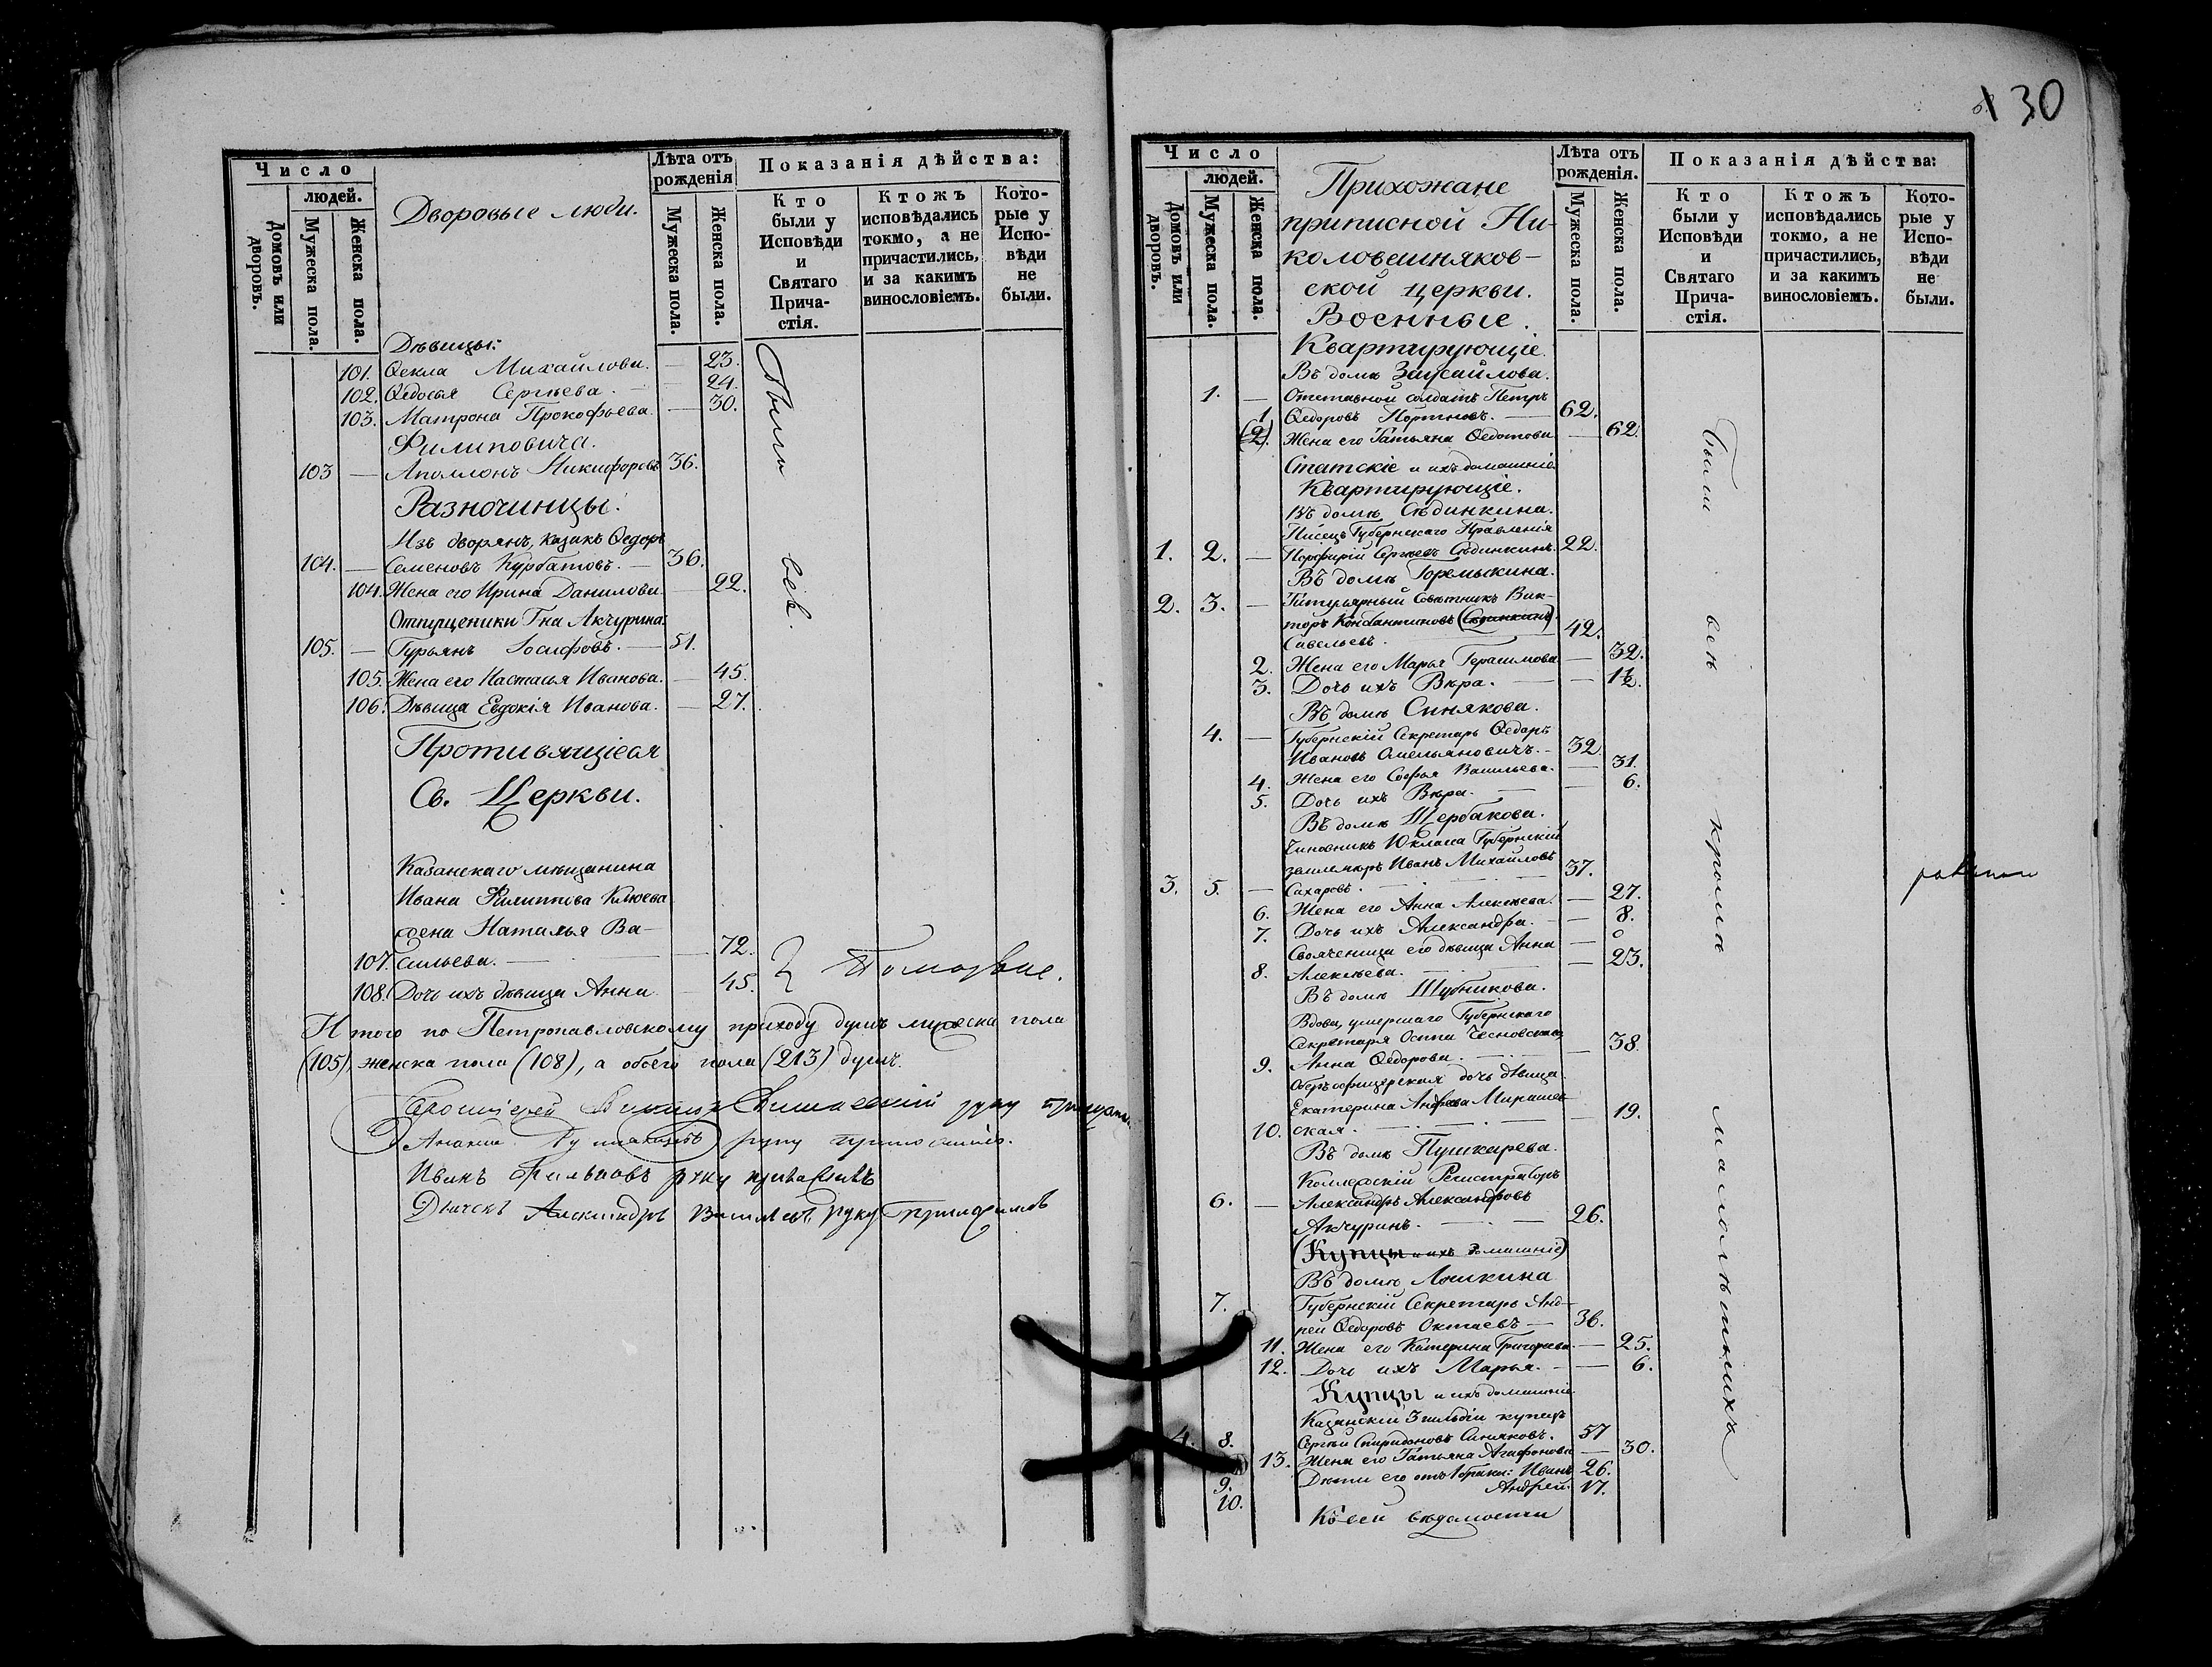 130
Число
людей.
Домовъ или дворовъ.
Мужеска пола.
Женска пола.
Дворовые люди.
Лѣта отъ рожденія
Мужеска пола.
Женска пола.
Показанія дѣйства:
Кто были у Исповѣди и Святаго Причастія.
Ктожъ исповѣдались токмо, а не причастились, и за какимъ винословіемъ.
Которые у Исповѣди не были.
Дѣвицы:
101. Ѳекла Михайлова. — 23.
102. Ѳедосья Сергѣева. — 24.
103. Матрона Прокофьева. — 30.
Филиповича.
103 — Аполлонъ Никифоровъ 36.
Разночинцы.
Изъ дворянъ, казакъ Ѳедоръ
104. — Семеновъ Курбатовъ. — 36.
104. Жена его Ирина Данилова. — 22.
Отпущеники Гна Акчурина:
105. — Гурьянъ Іосифовъ. — 51.
105. Жена его Настасья Иванова. — 45.
106. Дѣвица Евдокія Иванова. — 27.
Были всѣ
Противящіеся
Св. Церкви.
Казанскаго мѣщанина
Ивана Филиппова Клюева
жена Наталья Ва-
107. сильева. — 72.
108. Дочь ихъ дѣвица Анна 45.
Итого по Петропавловскому приходу душъ мужеска пола
(105) женска пола (108), а обоего пола (213) душъ.
Протоіерей Викторъ Вишневскій руку приложилъ
руку приложилъ.
Иванъ руку приложилъ
Дьячекъ Александръ Васильевъ руку приложилъ
Число
людей.
Домовъ или дворовъ.
Мужеска пола.
Женска пола.
Прихожане
приписной Ни-
коловешняков-
ской церкви.
Военные.
Лѣта отъ рожденія.
Мужеска пола.
Женска пола.
Показанія дѣйства:
Кто были у Исповѣди и Святаго Причастія.
Ктожъ исповѣдались токмо, а не причастились, и за какимъ винословіемъ.
Которые у Исповѣди не были.
Квартирующіе.
Въ домѣ Заусайлова.
1. — Отставной солдатъ Петръ
Ѳедоровъ Портновъ. — 62.
1 (2). Жена его Татьяна Ѳедотова — 62.
Статскіе и ихъ домашніе
Квартирующіе.
Въ домѣ Сѣдинкина.
Писецъ Губернскаго Правленія
1. 2. — Порфирій Сергѣевъ Сѣдинкинъ. 22.
Въ домѣ Горемыкина.
2. 3. — Титулярный Совѣтникъ Вик-
торъ Константиновъ (Сѣдинкинъ)
Савельевъ. 42.
2. Жена его Марья Герасимова — 32.
3. Дочь ихъ Вѣра. — 1½.
Въ домѣ Синякова.
4. — Губернскій Секретарь Ѳедоръ
Ивановъ Омельяновичъ. — 32
4. Жена его Софья Васильева. — 31.
5. Дочь ихъ Вѣра. — 6.
Въ домѣ Щербакова.
Чиновникъ 10 класса Губернскій
землемѣръ Иванъ Михайловъ
3. 5. — Сахаровъ. 37.
6. Жена его Анна Алексѣева. — 27.
7. Дочь ихъ Александра. — 8.
Свояченица его дѣвица Анна
8. Алексѣева. — 23.
Въ домѣ Шубникова.
Вдова, умершаго Губернскаго
Секретаря Осипа
9. Анна Ѳедорова. — 38.
Оберъ офицерская дочь дѣвица
Екатерина Андреева
10. ская. — 19.
Въ домѣ Пушкарева.
Коллежскій Регистраторъ
6. — Александръ Александровъ
Акчуринъ. — 26.
(Купцы и ихъ домашніе)
Въ домѣ Лошкина
7. Губернскій Секретарь Анд-
рей Ѳедоровъ Октаевъ — 36.
11. Жена его Катерина Григорьева — 25.
12. Дочь ихъ Марья. — 6.
Купцы и ихъ домашніе
Казанскій 3 гильдіи купецъ
4. 8. Сергѣй Спиридоновъ Синяковъ. 57
13. Жена его Татьяна Агафонова — 30.
9. Дѣти его отъ 1 брака: Иванъ 26.
10. Андрей. 17.
Къ сей вѣдомости
были всѣ кромѣ малолѣтнихъ